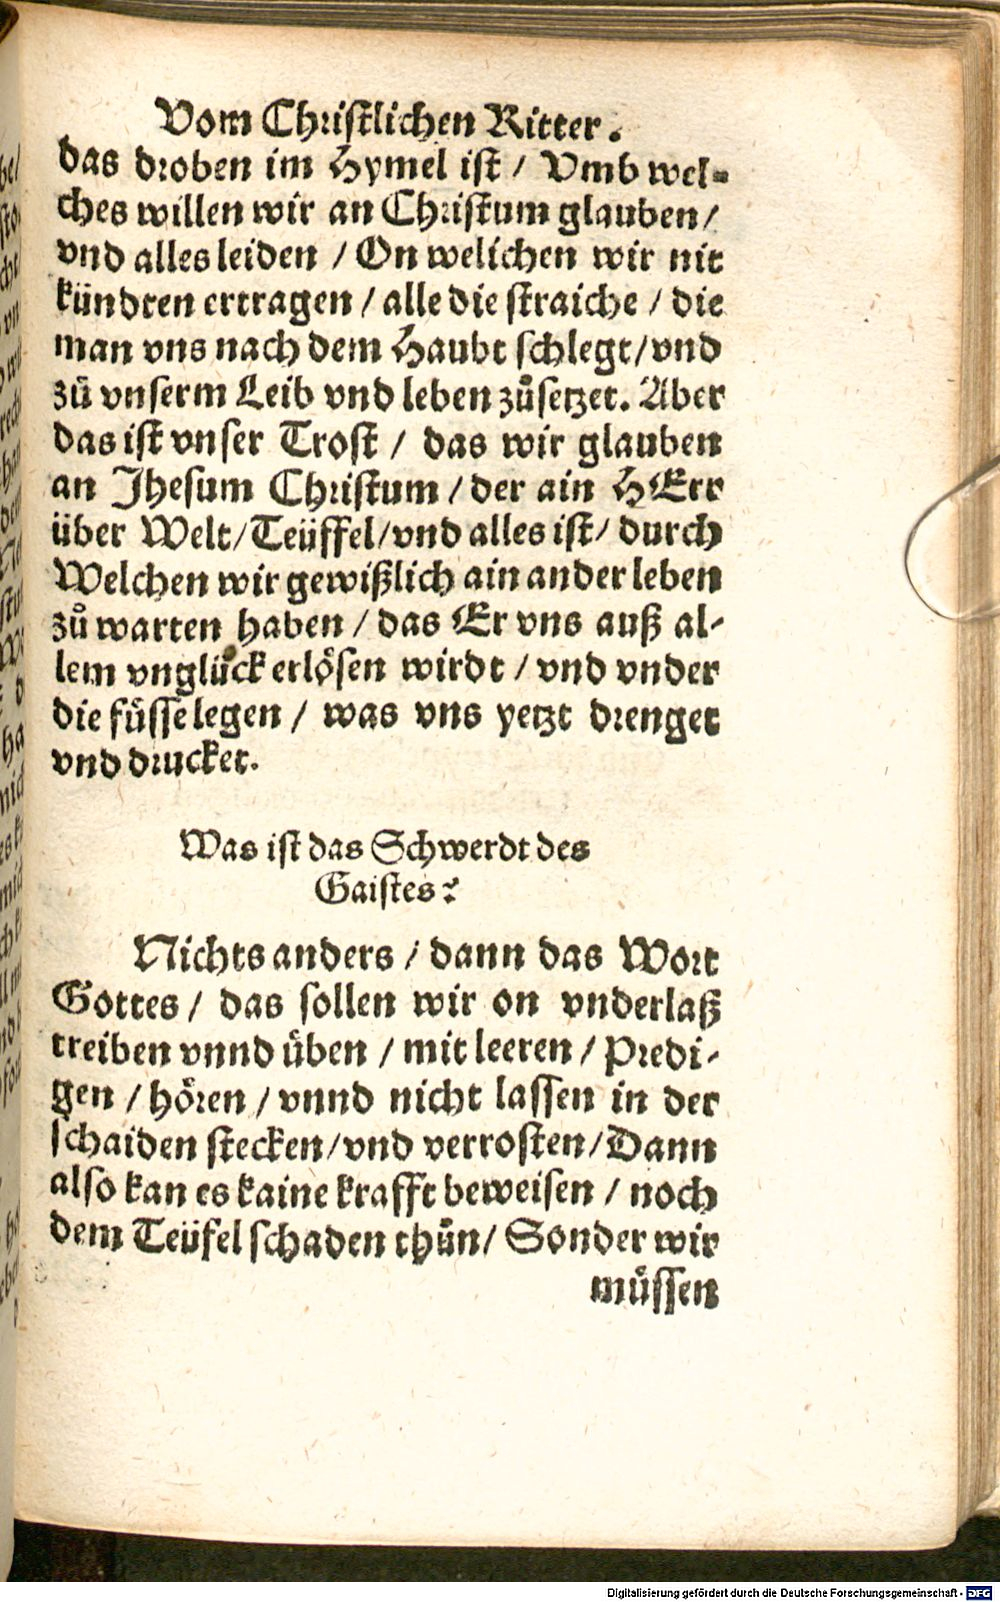 Vom Christlichen Ritter.
das droben im Hymel ist / Vmb wel-
ches willen wir an Christum glauben /
vnd alles leiden / On welichen wir nit
kündten ertragen / alle die straiche / die
man vns nach dem Haubt schlegt / vnd
zů vnserm Leib vnd leben zůsetzet. Aber
das ist vnser Trost / das wir glauben
an Jhesum Christum / der ain HErr
über Welt / Teüffel / vnd alles ist / durch
Welchen wir gewißlich ain ander leben
zů warten haben / das Er vns auß al-
lem vnglück erlösen wirdt / vnd vnder
die füsse legen / was vns yetzt drenget
vnd drucket.
Was ist das Schwerdt des
Gaistes?
Nichts anders / dann das Wort
Gottes / das sollen wir on vnderlaß
treiben vnnd üben / mit leeren / Predi-
gen / hören / vnnd nicht lassen in der
schaiden stecken / vnd verrosten / Dann
also kan es kaine krafft beweisen / noch
dem Teüfel schaden thůn / Sonder wir
müssen
Digitalisierung gefördert durch die Deutsche Forschungsgemeinschaft - DFG